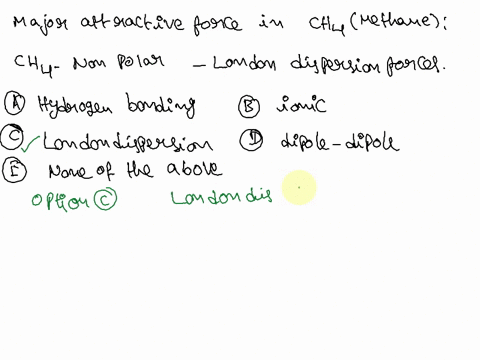 Major attractive force in CH4 (Methane):
CH4 - Non Polar - London dispersion forces.
Ⓐ Hydrogen bonding Ⓑ ionic
Ⓒ ✓ London dispersion Ⓓ dipole-dipole
Ⓔ None of the above
Option Ⓒ London dis